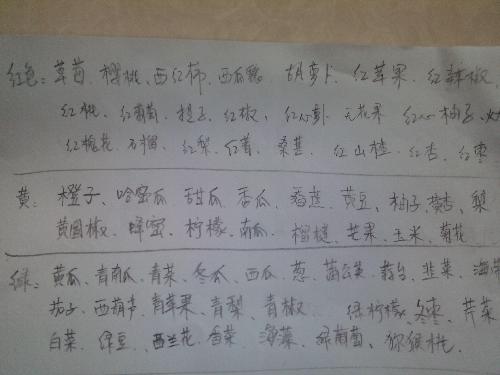 红色：草莓、樱桃、西红柿、西瓜 胡萝卜、红苹果、红辣椒、
红桃、红葡萄、提子、红椒、红心萝卜 无花果 红心柚子、
红桃花、石榴、红梨、红薯、桑葚、红山楂、红杏、红枣
黄：橙子、哈密瓜、甜瓜、香瓜、香蕉、黄豆、柚子、黄杏、梨
黄圆椒、蜂蜜、柠檬、南瓜、榴莲、芒果、玉米、菊花
绿：黄瓜、青南瓜、青菜、冬瓜、西瓜、葱、蒲公英、韭菜、海带
茄子、西葫芦、青苹果、青梨、青椒 绿柠檬、冬枣、芹菜
白菜、绿豆、西兰花、香菜、海菜、绿葡萄、猕猴桃、